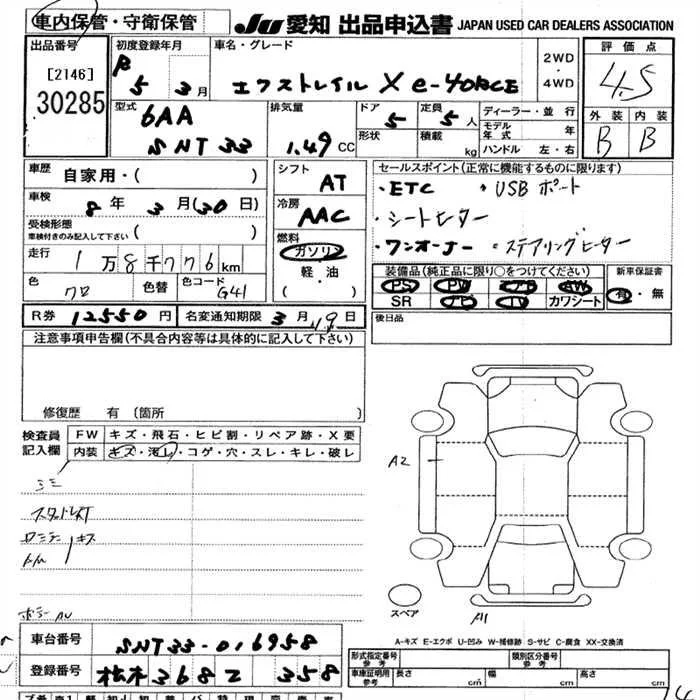 車内保管・守衛保管
JU 愛知 出品申込書 JAPAN USED CAR DEALERS ASSOCIATION
出品番号
[2146]
30285
初度登録年月
R
5 3月
車名・グレード
エクストレイル X e-4ORCE
2WD
・
4WD
評価点
4.5
外装 内装
B B
型式
6AA
SNT33
排気量
1.49 CC
ドア
5
定員
5人
形状
積載
kg
ディーラー・並行
モデル年式 年
ハンドル 左・右
車歴
自家用・( )
車検
8年 3月(30日)
受検形態
車検付きのみ記入して下さい ( )
走行
1万8千776km
色
クロ
色替
色コード
G41
シフト
AT
冷房
AAC
燃料
ガソリン
軽・油
( )
セールスポイント(正常に機能するものに限ります)
・ETC ・USBポート
・シートヒーター
・ワンオーナー ・ステアリングヒーター
装備品(純正品に限り○をつけてください)
PS PW AW
SR TV カワシート
新車保証書
有・無
R券 12550円 名変通知期限 3月19日
後日品
注意事項申告欄(不具合内容等は具体的に記入して下さい)
修復歴 有 〔箇所 〕
検査員記入欄
FW キズ・飛石・ヒビ割・リペア跡・X要
内装 キズ・汚レ・コゲ・穴・スレ・キレ・破レ
A2
スペア
A1
A-キズ E-エクボ U-凹み W-補修跡 S-サビ C-腐食 XX-交換済
車台番号 SNT33-016958
登録番号 松本 368 358
形式指定番号 参考
類別区分番号 参考
車庫証明用 参考 長さ cm 幅 cm 高さ cm